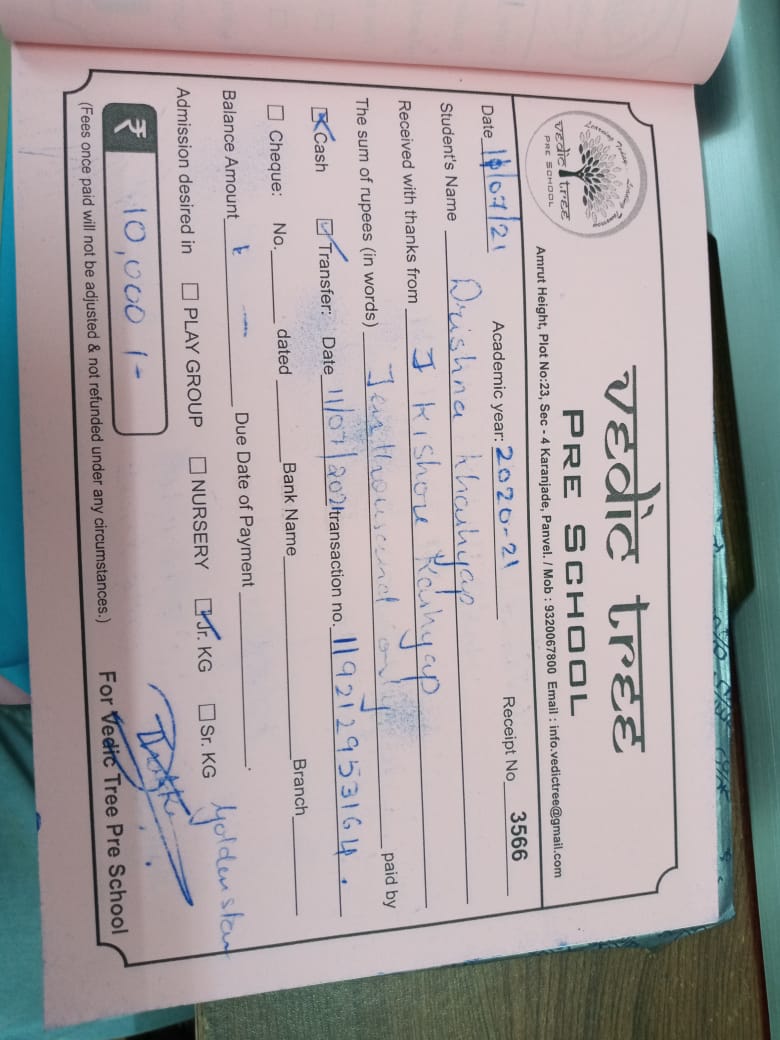 vedic tree
PRE SCHOOL
vedic tree
PRE SCHOOL
Amrut Height, Plot No:23, Sec - 4 Karanjade, Panvel. / Mob : 9320067800 Email : info.vedictree@gmail.com
Date 11/07/21 Academic year: 2020-21 Receipt No 3566
Student's Name Drishna Khashyap
Received with thanks from J Kishore Kashyap
The sum of rupees (in words) Ten thousand only paid by
Cash Transfer: Date 11/07/2021 transaction no. 119212953164.
Cheque: No. dated Bank Name Branch
Balance Amount Due Date of Payment
Admission desired in PLAY GROUP NURSERY Jr. KG Sr. KG Golden star
₹ 10,000/-
(Fees once paid will not be adjusted & not refunded under any circumstances.) For Vedic Tree Pre School